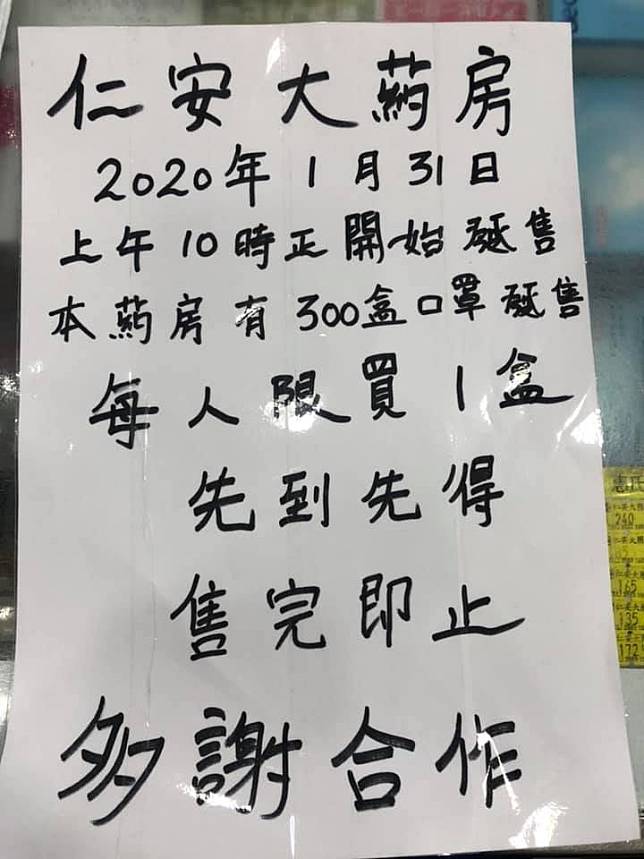 仁安大葯房
2020年1月31日
上午10時正開始發售
本葯房有300盒口罩發售
每人限買1盒
先到先得
售完即止
多謝合作
240
165
135
172